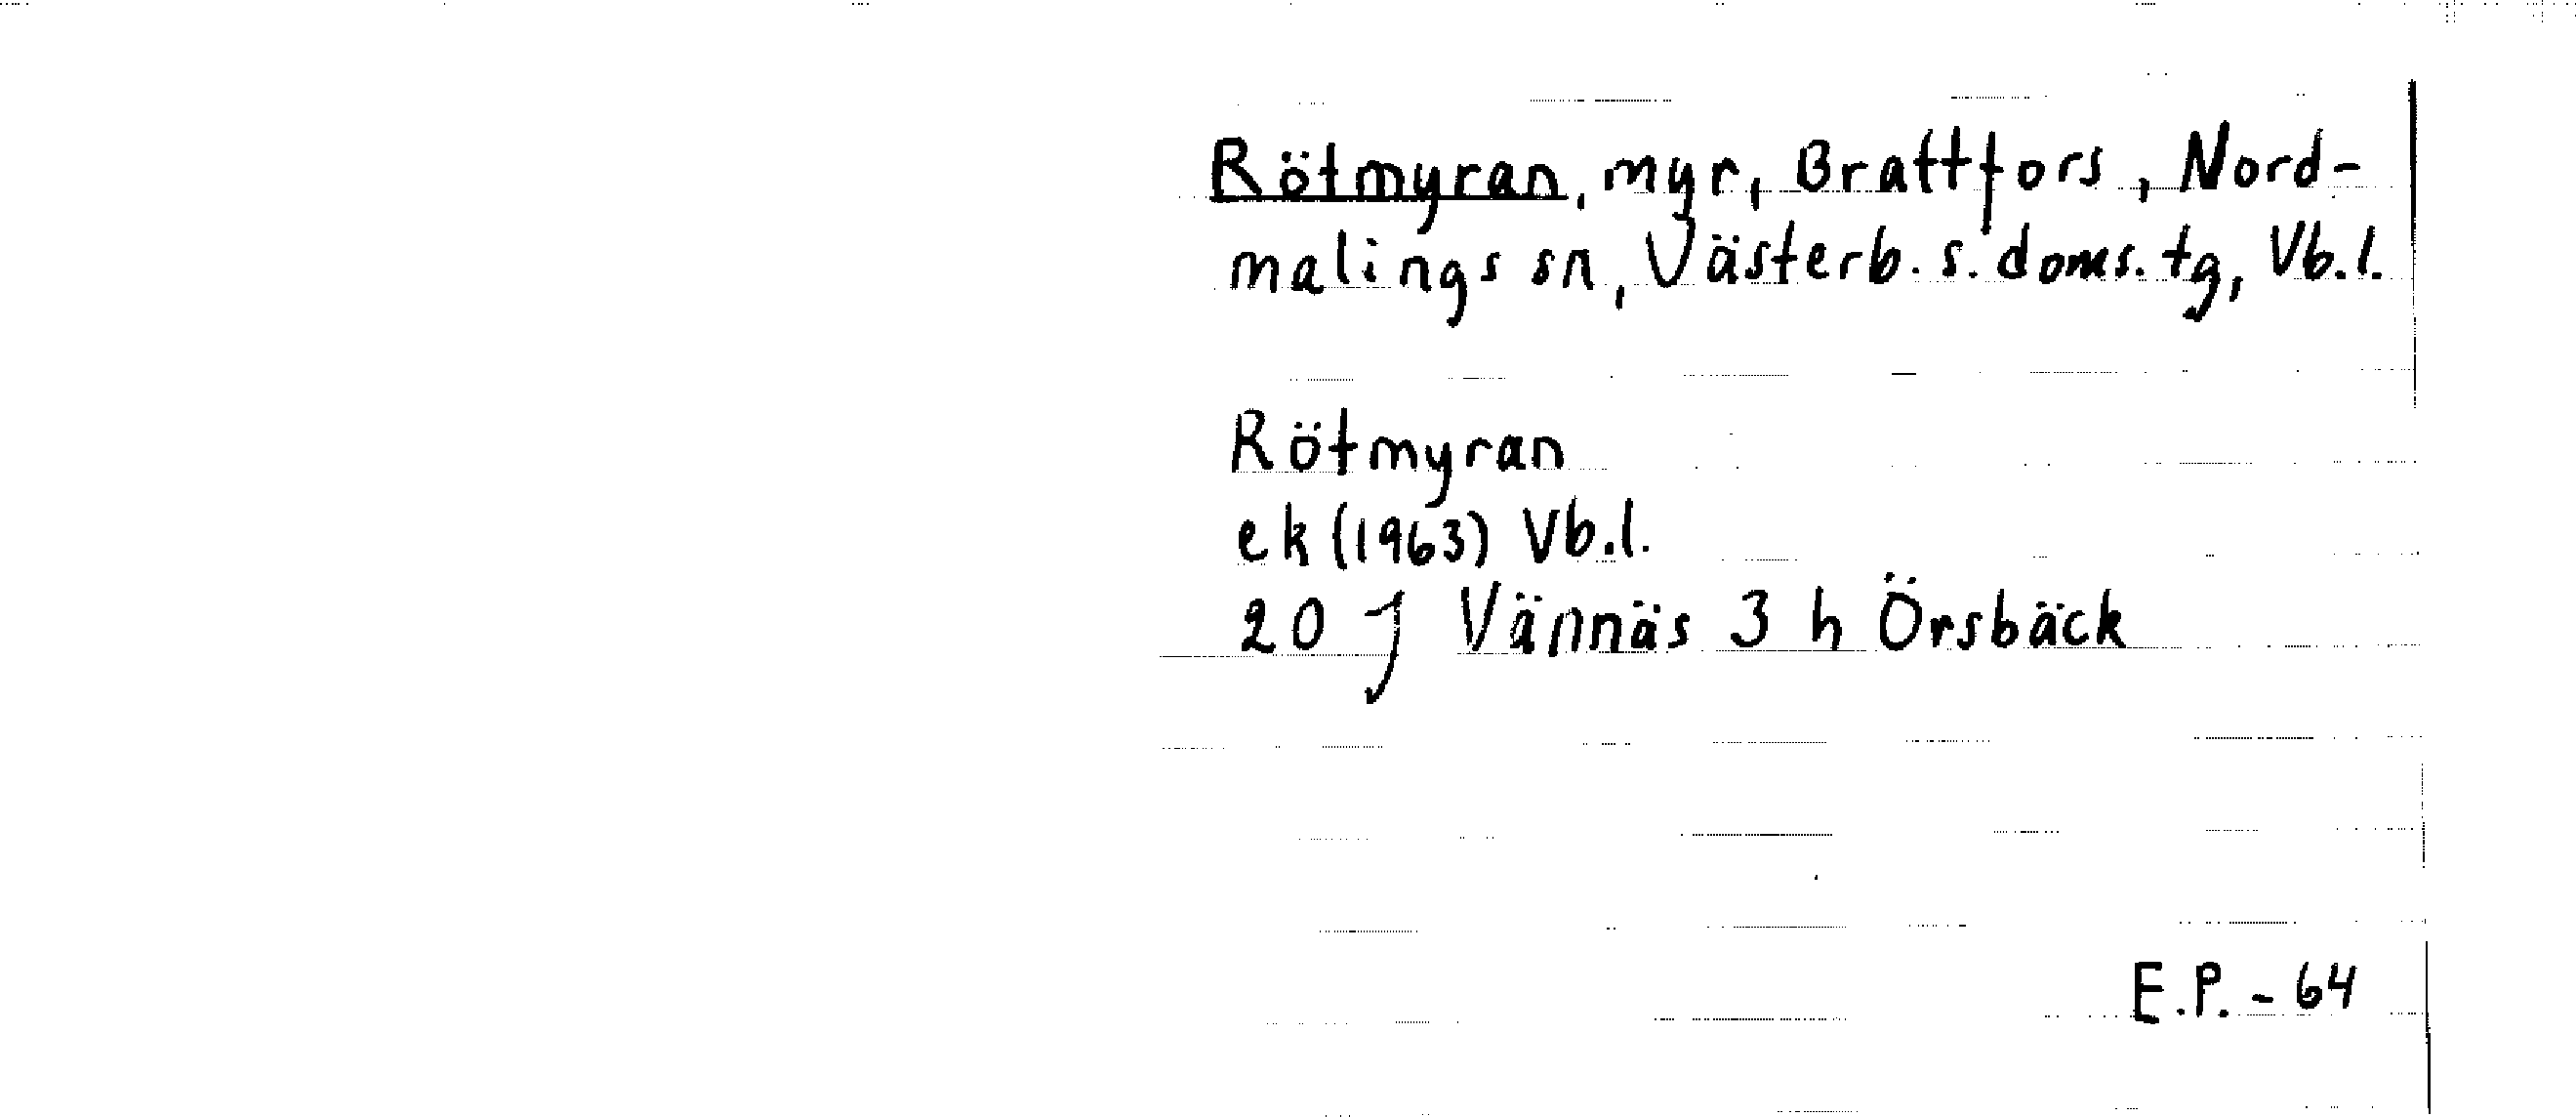 Rötmyran, myr, Brattfors, Nord-
malings sn, Västerb. s. doms. tg, Vb.l.
Rötmyran
ek (1963) Vb.l.
20 J Vännäs 3 h Örsbäck
E.P. - 64